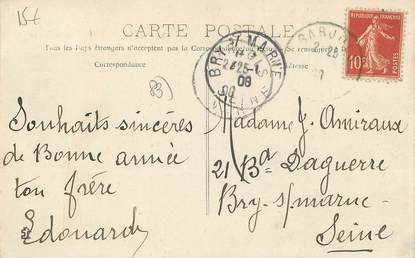 15€
CARTE POSTALE
Tous les Pays étrangers n'acceptent pas la Correspondance
Correspondance
Adresse
BRY-S-MARNE
SEINE
08
BARJO
2-25
10
POSTES
83
Souhaits sincères
de Bonne année
ton frère
Edouard
Madame J. Amiraux
21 Bd Daguerre
Bry-s/-marne-
Seine